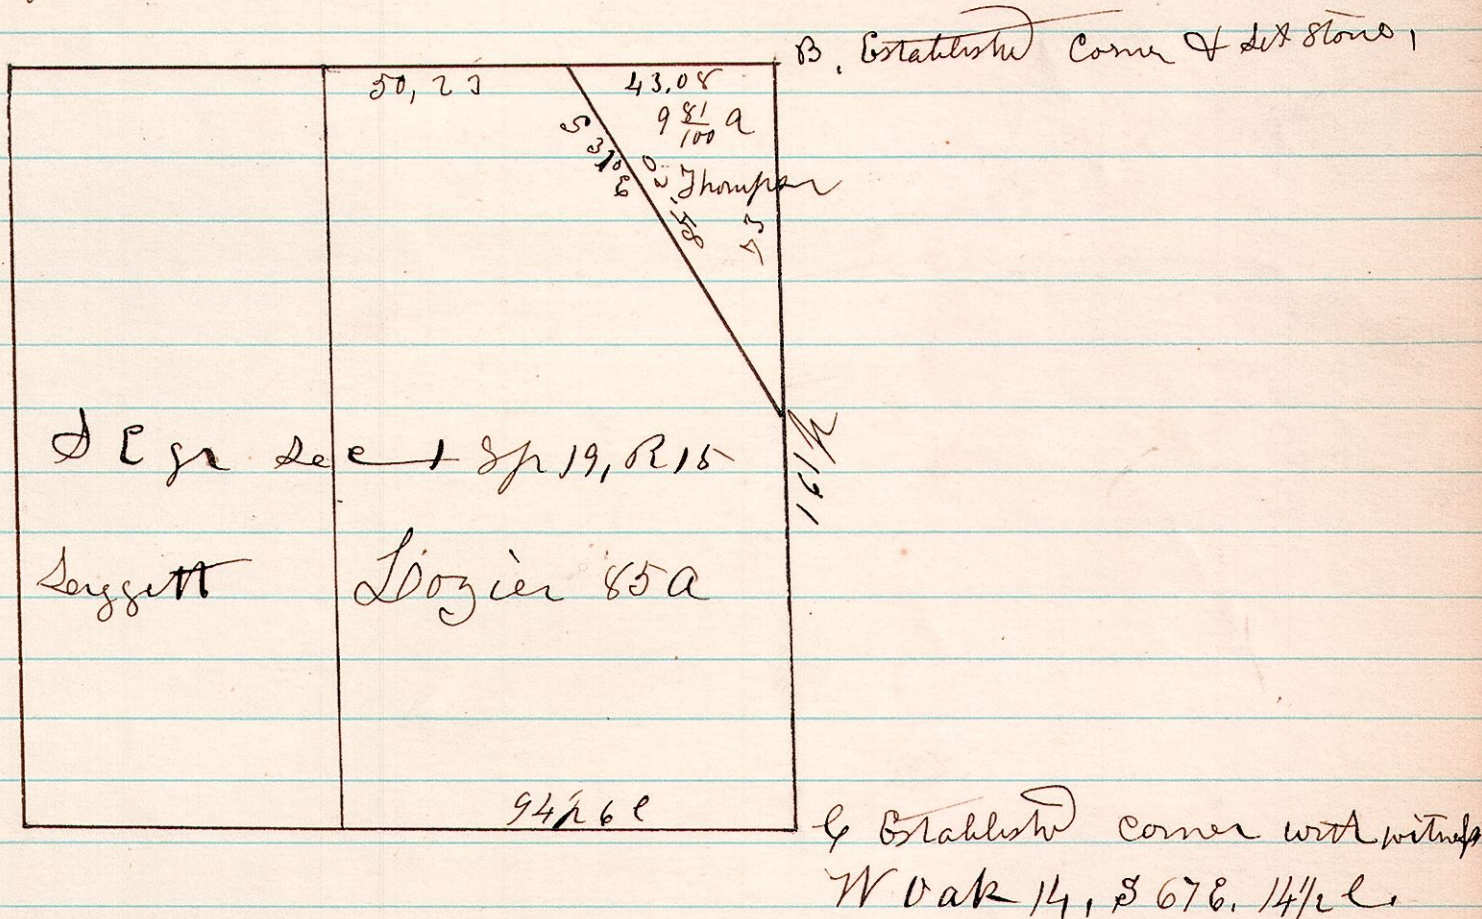 B. Established Corner & Set Stone,
50,23
43.08
9 81/100 a
S 31° E
Thompson
73
S E qr Sec 1 Tp 19, R 15
Dozier 85a
94 p 6 l
C Established Corner with witness
W Oak 14, S 67 E. 14 1/2 l.